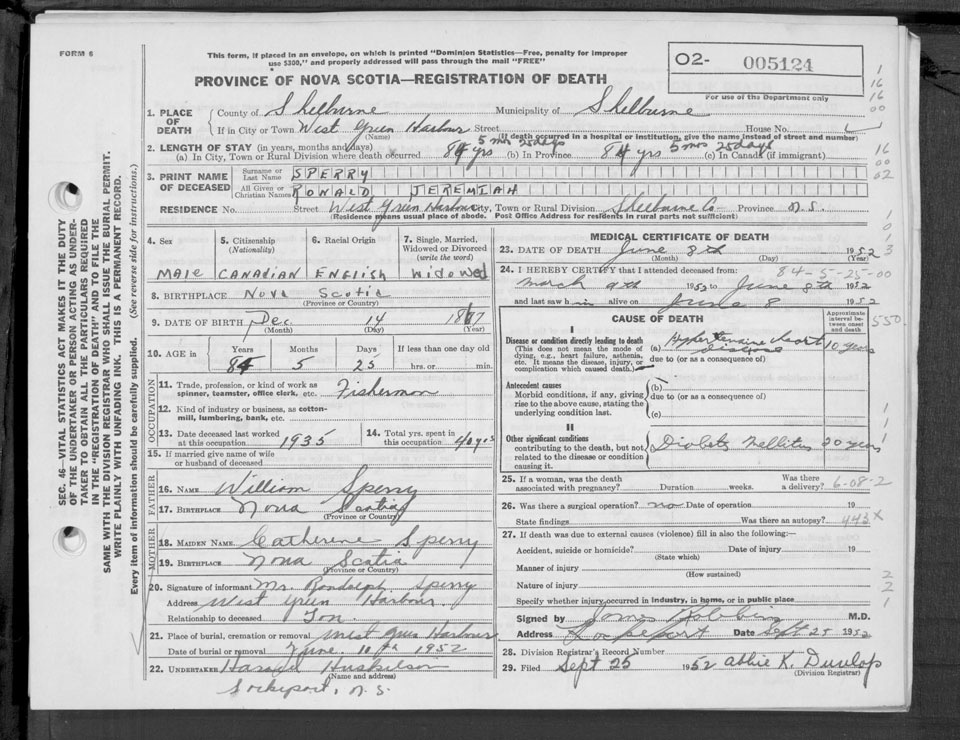 FORM 6
This form, if placed in an envelope, on which is printed "Dominion Statistics—Free, penalty for improper
use $300," and properly addressed will pass through the mail "FREE"
PROVINCE OF NOVA SCOTIA—REGISTRATION OF DEATH
O2- 005124
For use of the Department only
1. PLACE OF DEATH
County of Shelburne Municipality of Shelburne
If in City or Town West Green Harbour Street House No.
(Name) (If death occurred in a hospital or institution, give the name instead of street and number)
2. LENGTH OF STAY (in years, months and days) 5 mos 25 days 5 mos 25 days
(a) In City, Town or Rural Division where death occurred 84 yrs (b) In Province 84 yrs (c) In Canada (if immigrant)
3. PRINT NAME OF DECEASED
Surname or Last Name SPERRY
All Given or Christian Names RONALD JEREMIAH
RESIDENCE No. Street West Green Harbour City, Town or Rural Division Shelburne Co Province N.S.
(Residence means usual place of abode. Post Office Address for residents in rural parts not sufficient)
4. Sex 5. Citizenship (Nationality) 6. Racial Origin 7. Single, Married, Widowed or Divorced (write the word)
Male CANADIAN ENGLISH WIDOWED
8. BIRTHPLACE Nova Scotia
(Province or Country)
9. DATE OF BIRTH Dec. 14
(Month) (Day) (Year)
10. AGE in Years Months Days If less than one day old
84 5 25 hrs. or min.
OCCUPATION
11. Trade, profession, or kind of work as spinner, teamster, office clerk, etc. Fisherman
12. Kind of industry or business, as cotton-mill, lumbering, bank, etc.
13. Date deceased last worked at this occupation 1935 14. Total yrs. spent in this occupation 40 yrs
15. If married give name of wife or husband of deceased
FATHER
16. NAME William Sperry
17. BIRTHPLACE Nova Scotia
(Province or Country)
MOTHER
18. MAIDEN NAME Catherine Sperry
19. BIRTHPLACE Nova Scotia
(Province or Country)
20. Signature of informant Mr. Randolph Sperry
Address West Green Harbour.
Relationship to deceased Son.
21. Place of burial, cremation or removal West Green Harbour
Date of burial or removal June. 10th 1952
22. UNDERTAKER Harold Huskilson
(Name and address)
Lockeport, N.S.
MEDICAL CERTIFICATE OF DEATH
23. DATE OF DEATH June 8th 1952
(Month) (Day) (Year)
24. I HEREBY CERTIFY that I attended deceased from: 84-5-25-00
March 9th 1952 to June 8th 1952
and last saw him alive on June 8 1952
CAUSE OF DEATH
Approximate interval between onset and death
550
I
Disease or condition directly leading to death (a) Hypertensive heart disease 10 years
(This does not mean the mode of dying, e.g., heart failure, asthenia, etc. It means the disease, injury, or complication which caused death.)
due to (or as a consequence of)
Antecedent causes
Morbid conditions, if any, giving rise to the above cause, stating the underlying condition last.
(b)
due to (or as a consequence of)
(c)
II
Other significant conditions contributing to the death, but not related to the disease or condition causing it.
Diabetes Mellitus 20 years
25. If a woman, was the death associated with pregnancy? Duration weeks. Was there a delivery? 6-08-2
26. Was there a surgical operation? no Date of operation 19
State findings Was there an autopsy? 443x
27. If death was due to external causes (violence) fill in also the following:—
Accident, suicide or homicide? Date of injury 19
(State which)
Manner of injury
(How sustained)
Nature of injury
Specify whether injury occurred in industry, in home, or in public place
Signed by M.D.
Address Lockeport Date Sept 25 1952
28. Division Registrar's Record Number
29. Filed Sept 25 1952 Abbie K. Dunlop
(Division Registrar)
SEC. 46—VITAL STATISTICS ACT MAKES IT THE DUTY
OF THE UNDERTAKER OR PERSON ACTING AS UNDER-
TAKER TO OBTAIN ALL THE PARTICULARS REQUIRED
IN THE "REGISTRATION OF DEATH" AND TO FILE THE
SAME WITH THE DIVISION REGISTRAR WHO SHALL ISSUE THE BURIAL PERMIT.
WRITE PLAINLY WITH UNFADING INK. THIS IS A PERMANENT RECORD.
Every item of information should be carefully supplied. (See reverse side for instructions.)